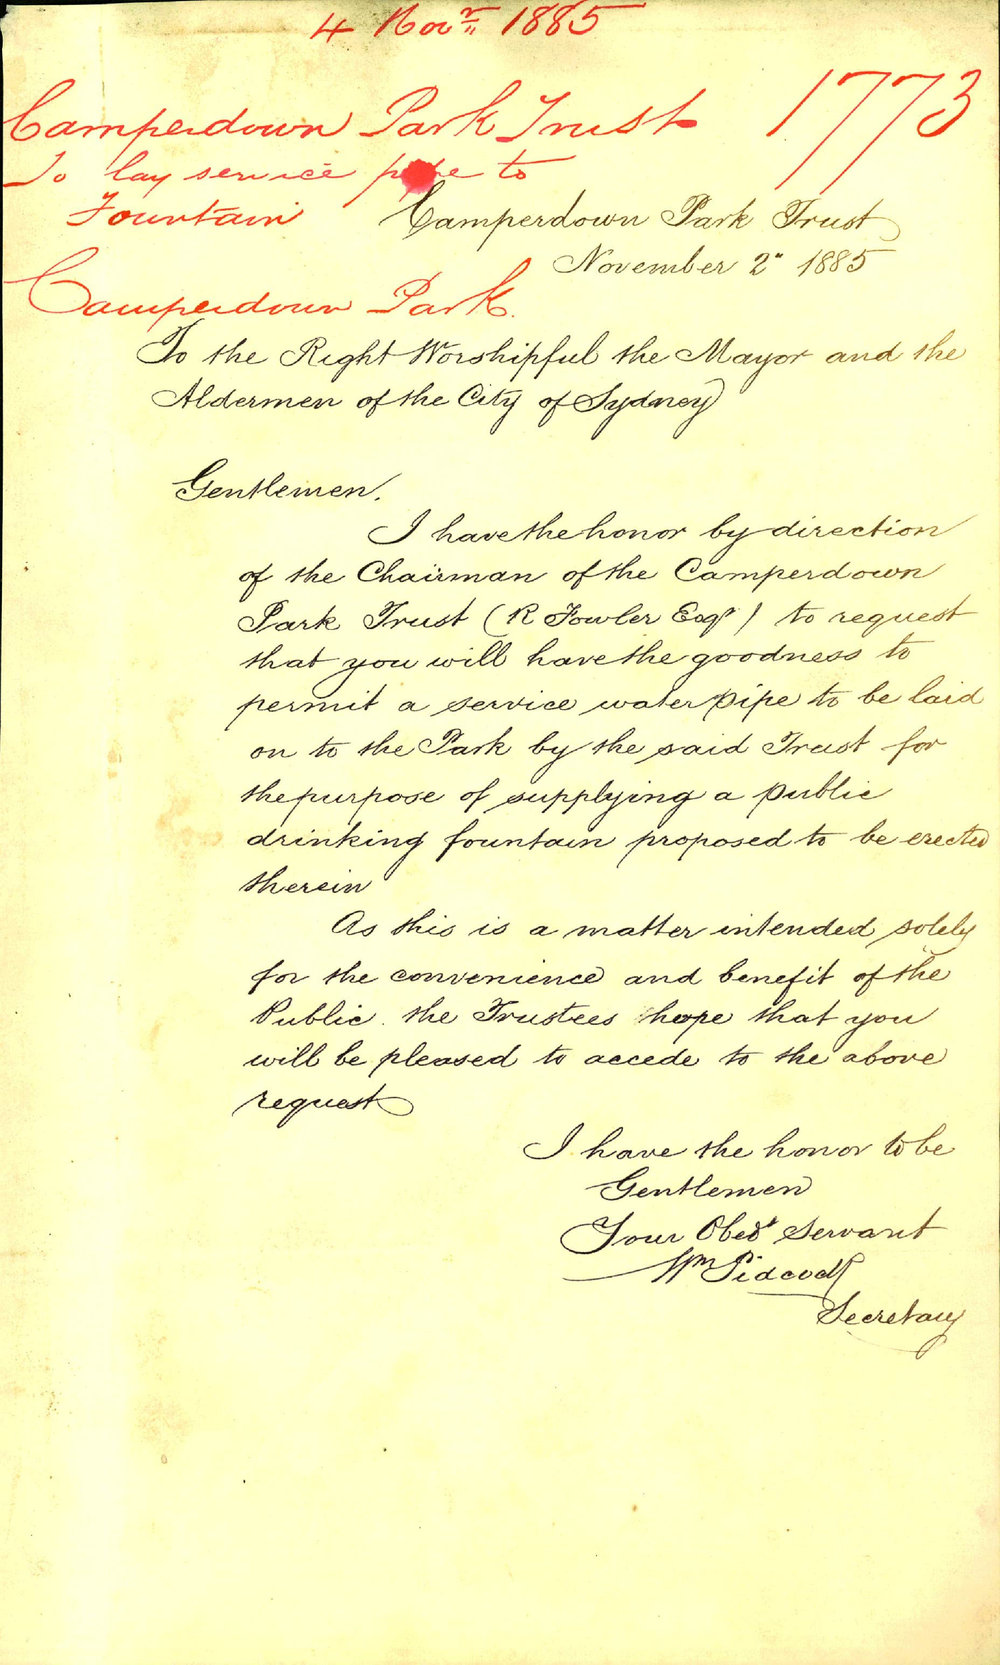 4 Novr 1885
Camperdown Park Trust 1773
To lay service pipe to
Fountain
Camperdown Park Trust
November 2" 1885
Camperdown Park.
To the Right Worshipful the Mayor and the
Aldermen of the City of Sydney
Gentlemen.
I have the honor by direction
of the Chairman of the Camperdown
Park Trust (R Fowler Esqr) to request
that you will have the goodness to
permit a service water pipe to be laid
on to the Park by the said Trust for
the purpose of supplying a public
drinking fountain proposed to be erected
therein
As this is a matter intended solely
for the convenience and benefit of the
Public. the Trustees hope that you
will be pleased to accede to the above
request
I have the honor to be
Gentlemen
Your Obedt Servant
Wm Pidcock
Secretary